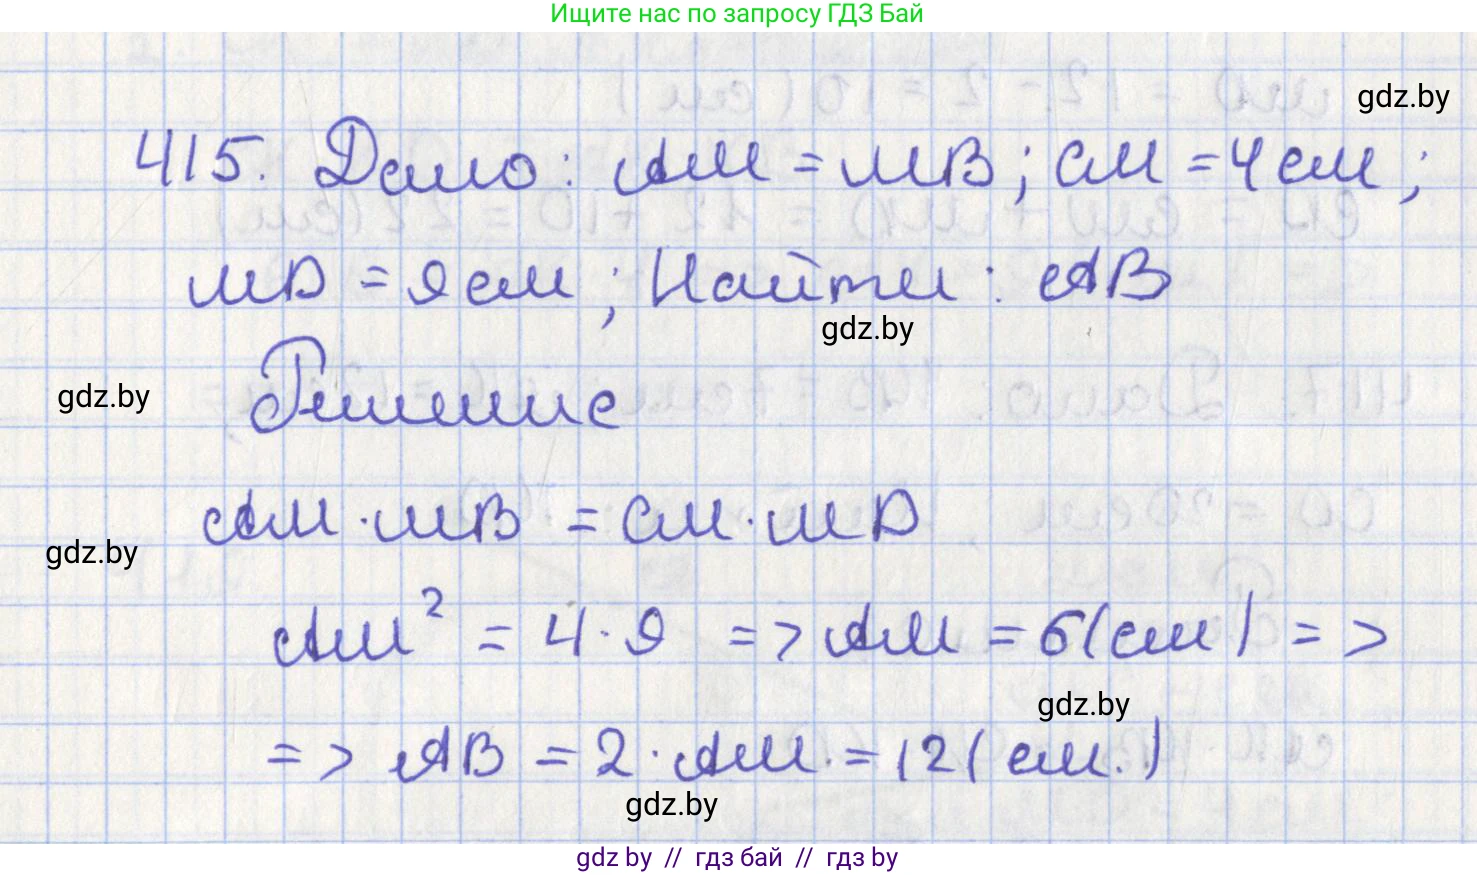 Ищите нас по запросу ГДЗ Бай
gdz.by
415. Дано: AM = MB; CM = 4 см;
MD = 9 см; Найти: AB
gdz.by
Решение
gdz.by
AM · MB = CM · MD
gdz.by
AM² = 4 · 9 => AM = 6 (см) =>
gdz.by
=> AB = 2 · AM = 12 (см.)
gdz.by
gdz by // гдз бай // гдз by